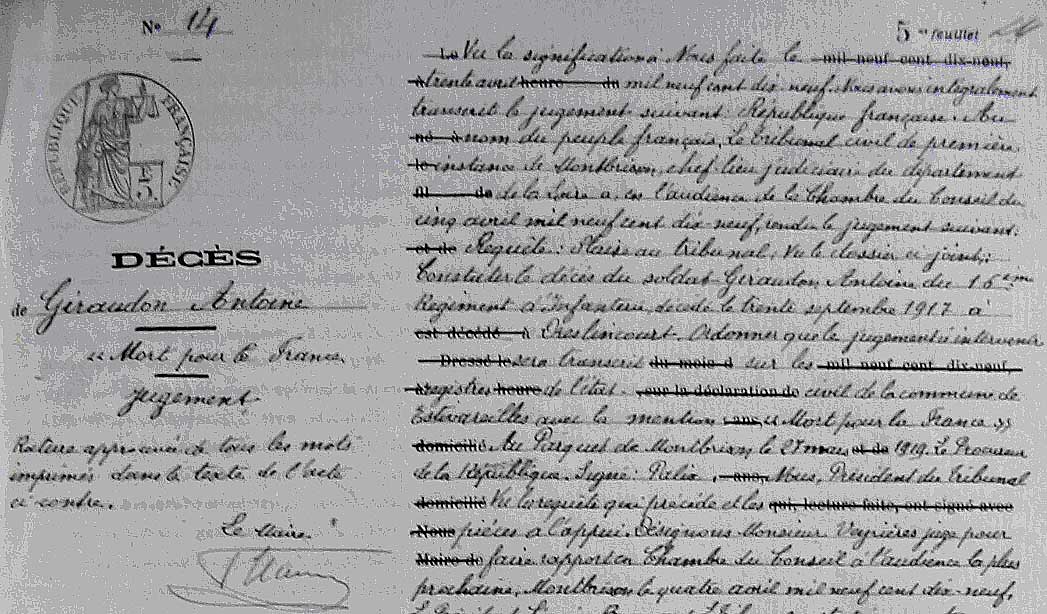 N° 14
RÉPUBLIQUE FRANÇAISE.
DÉCÈS
de Giraudon Antoine
" Mort pour la France
Jugement
Rature approuvée de tous les mots
imprimés dans le texte de l'acte
ci-contre.
Le Maire
5me feuillet
Le Vu la signification à Nous faite le mil neuf cent dix-neuf,
à trente avril heure du mil neuf cent dix-neuf. Nous avons intégralement
transcrit le jugement suivant. République française. Au
né à nom du peuple français, Le Tribunal civil de première
le instance de Montbrison, chef-lieu judiciaire du département
fil de de la Loire a, en l'audience de la Chambre du Conseil du
cinq avril mil neuf cent dix-neuf, rendu le jugement suivant.
et de Requête: Plaise au tribunal; Vu le dossier ci joint;
Constater le décès du soldat Giraudon, Antoine du 16eme
Régiment d'Infanterie, décédé le trente septembre 1917 à
est décédé à Oreslincourt. Ordonner que le jugement à intervenir
Dressé le sera transcrit du mois d sur les mil neuf cent dix-neuf,
à registres heure de l'état- sur la déclaration de civil de la commune de
Estivareilles avec la mention ans " Mort pour la France "
domicilié Au Parquet de Montbrison le 27 mars et de 1919. Le Procureur
de la République. Signé: , ans, Nous, Président du Tribunal
domicilié Vu la requête qui précède et les qui, lecture faite, ont signé avec
Nous pièces à l'appui. Désignons Monsieur Veyrières juge pour
Maire de faire rapport en Chambre du Conseil à l'audience la plus
prochaine, Montbrison le quatre avril mil neuf cent dix-neuf,